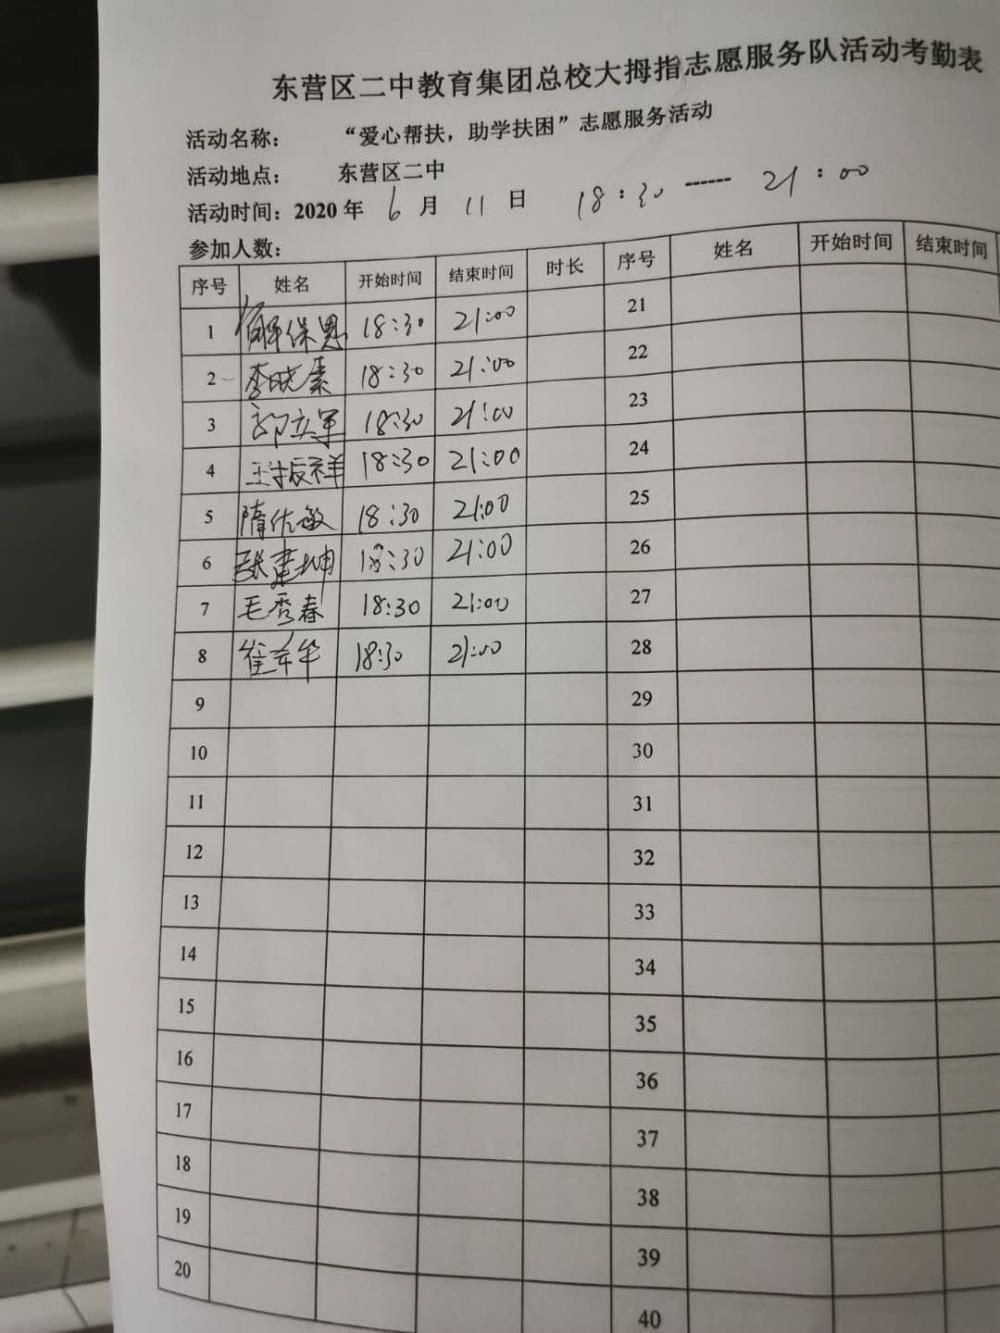 东营区二中教育集团总校大拇指志愿服务队活动考勤表
活动名称： “爱心帮扶，助学扶困”志愿服务活动
活动地点： 东营区二中
活动时间：2020年 6 月 11 日 18：30 ------ 21：00
参加人数：
序号 姓名 开始时间 结束时间 时长 序号 姓名 开始时间 结束时间
1 解保恩 18:30 21:00 21
2 李晓素 18:30 21:00 22
3 郭立军 18:30 21:00 23
4 王振祥 18:30 21:00 24
5 隋佐敏 18:30 21:00 25
6 张建坤 18:30 21:00 26
7 毛秀春 18:30 21:00 27
8 崔 华 18:30 21:00 28
9 29
10 30
11 31
12 32
13 33
14 34
15 35
16 36
17 37
18 38
19 39
20 40